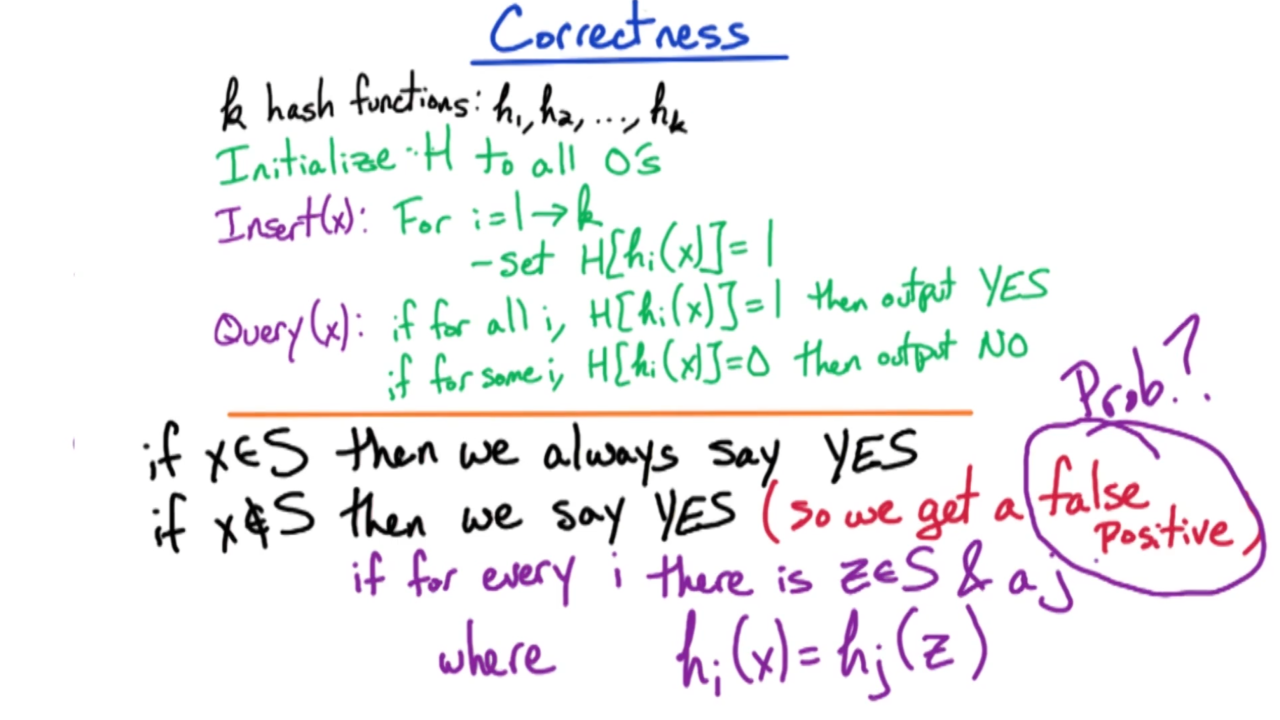 Correctness
k hash functions: h₁, h₂, ..., hₖ
Initialize H to all 0's
Insert(x): For i=1→k
-set H[hᵢ(x)]=1
Query(x): if for all i, H[hᵢ(x)]=1 then output YES
if for some i, H[hᵢ(x)]=0 then output NO
Prob.?
if x∈S then we always say YES
if x∉S then we say YES (so we get a false
positive)
if for every i there is z∈S & a j
where hᵢ(x)=hⱼ(z)